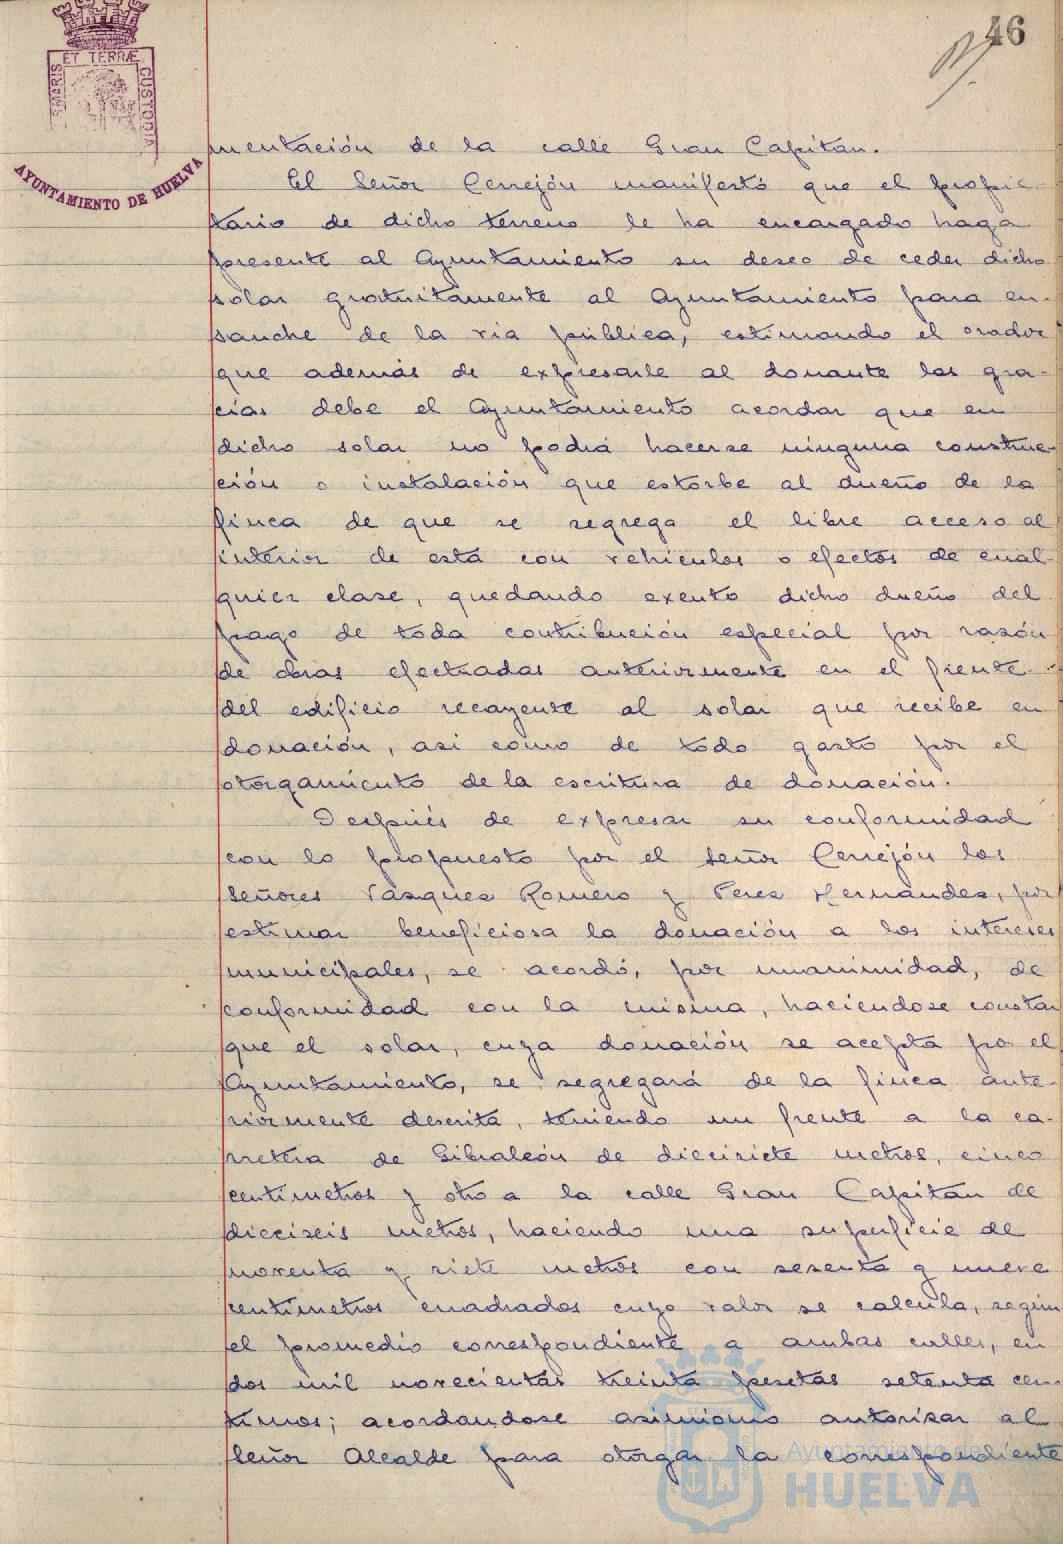 46
SMARIS ET TERRÆ CUSTODIA
AYUNTAMIENTO DE HUELVA
mentación de la calle Gran Capitán.
El Señor Cerrejón manifestó que el propie-
tario de dicho terreno le ha encargado haga
presente al Ayuntamiento su deseo de ceder dicho
solar gratuitamente al Ayuntamiento para en-
sanche de la via pública, estimando el orador
que además de expresarle al donante las gra-
cias debe el Ayuntamiento acordar que en
dicho solar no podrá hacerse ninguna construc-
ción o instalación que estorbe al dueño de la
finca de que se segrega el libre acceso al
interior de esta con vehiculos o efectos de cual-
quier clase, quedando exento dicho dueño del
pago de toda contribución especial por razón
de obras efectuadas anteriormente en el frente
del edificio recayente al solar que recibe en
donación, asi como de todo gasto por el
otorgamiento de la escritura de donación.
Después de expresar su conformidad
con lo propuesto por el Señor Cerrejón los
Señores Vasquez Romero y Perez Hernandez, por
estimar beneficiosa la donación a los intereses
municipales, se acordó, por unanimidad, de
conformidad con la misma, haciendose constar
que el solar, cuya donación se acepta por el
Ayuntamiento, se segregará de la finca ante-
riormente descrita, teniendo un frente a la ca-
rretera de Gibraleón de diecisiete metros, cinco
centimetros y otro a la calle Gran Capitán de
dieciseis metros, haciendo una superficie de
noventa y siete metros con sesenta y nueve
centimetros cuadrados cuyo valor se calcula, según
el promedio correspondiente a ambas calles, en
dos mil novecientas treinta pesetas setenta cen-
timos; acordandose asimismo autorizar al
Señor Alcalde para otorgar la correspondiente
Ayuntamiento de
HUELVA